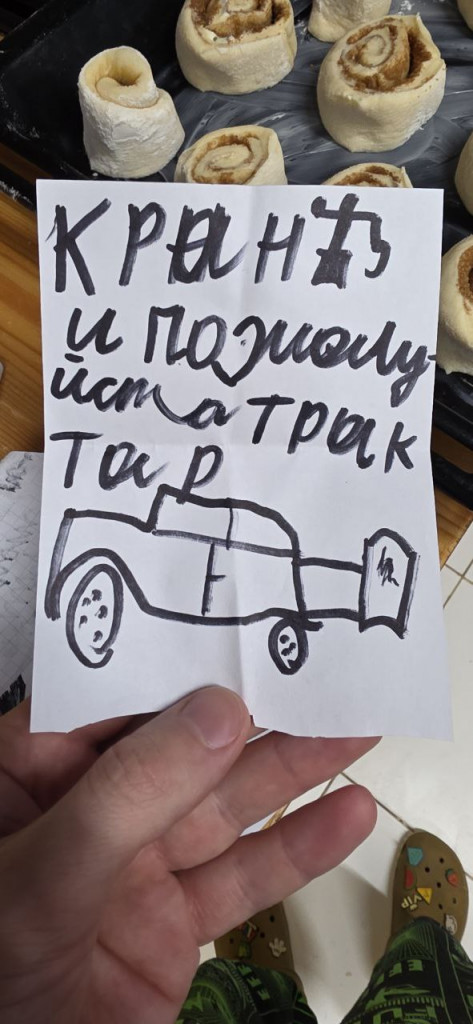 КРАН
и пожалу-
йста трак
тар
VIP